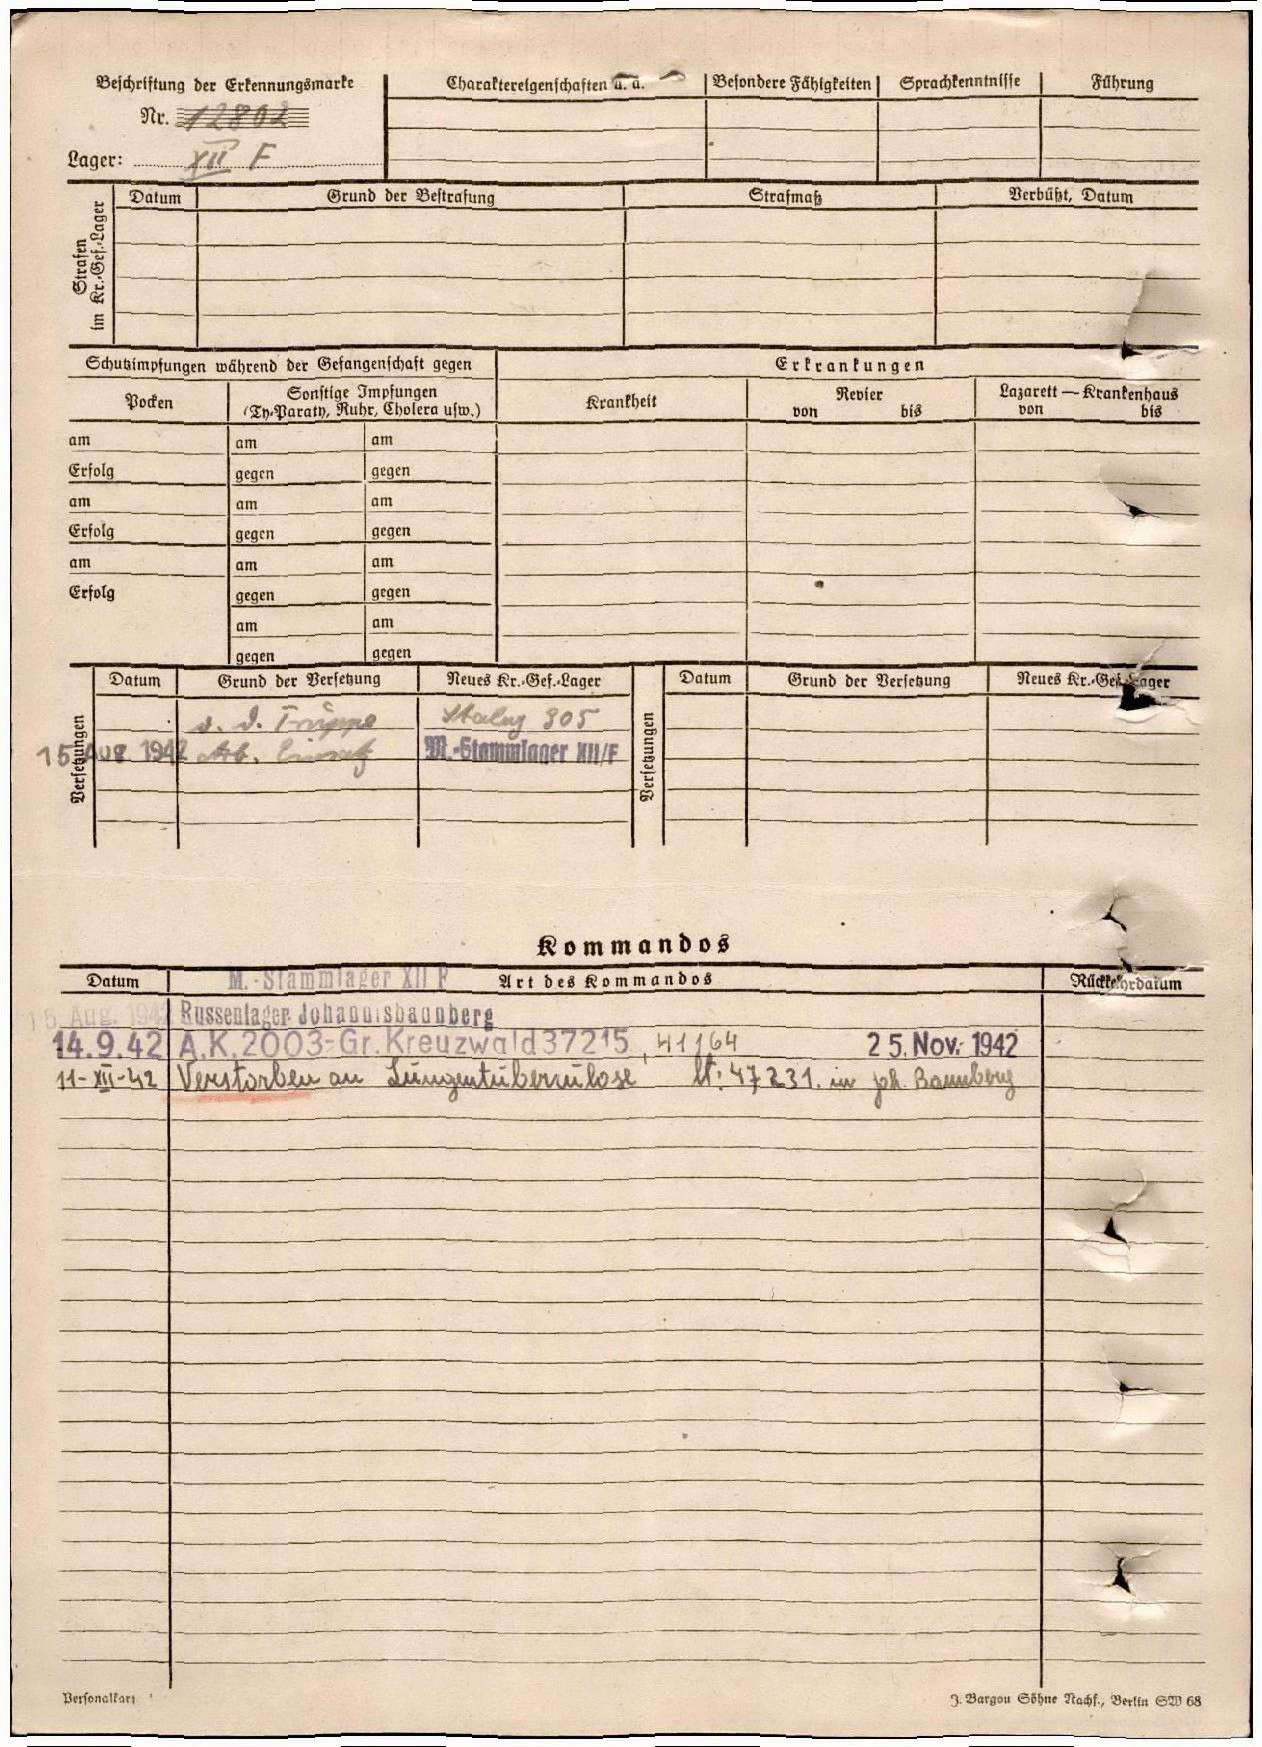 Beschriftung der Erkennungsmarke
Nr. 12802
Lager: XII F
Charaktereigenschaften u. a. Besondere Fähigkeiten Sprachkenntnisse Führung
Strafen im Kr.-Gef.-Lager
Datum Grund der Bestrafung Strafmaß Verbüßt, Datum
Schutzimpfungen während der Gefangenschaft gegen Erkrankungen
Pocken Sonstige Impfungen Krankheit Revier Lazarett — Krankenhaus
(Ty-Paraty, Ruhr, Cholera usw.) von bis von bis
am am am
Erfolg gegen gegen
am am am
Erfolg gegen gegen
am am am
Erfolg gegen gegen
am am
gegen gegen
Versetzungen Datum Grund der Versetzung Neues Kr.-Gef.-Lager Versetzungen Datum Grund der Versetzung Neues Kr.-Gef.-Lager
v. d. Truppe Stalag 305
15 Aug 1942 Arb. Einsatz M.-Stammlager XII/F
Kommandos
Datum M.-Stammlager XII F Art des Kommandos Rückkehrdatum
15. Aug. 1942 Russenlager Johannisbannberg
14.9.42 A.K. 2003-Gr. Kreuzwald 37215, 41164 25. Nov. 1942
11-XII-42 Verstorben an Lungentuberculose lt: 47231. in Joh. Bannberg
Personalkart
J. Bargou Söhne Nachf., Berlin SW 68